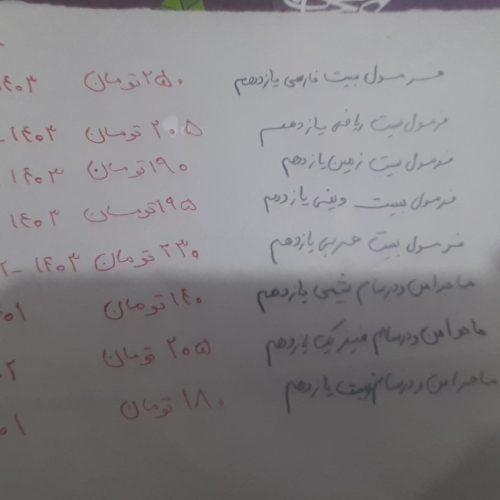 فرمول بیست فارسی یازدهم ۲۵۰ تومان ۱۴۰۳
فرمول بیست ریاضی یازدهم ۲۰۵ تومان ۱۴۰۳
فرمول بیست زمین یازدهم ۱۹۰ تومان ۱۴۰۳
فرمول بیست دینی یازدهم ۱۹۵ تومان ۱۴۰۳
فرمول بیست عربی یازدهم ۲۳۰ تومان ۱۴۰۳ -
ماجرا من و درسام شیمی یازدهم ۱۴۰ تومان
ماجرا من و درسام فیزیک یازدهم ۲۰۵ تومان
ماجرا من و درسام زیست یازدهم ۱۸۰ تومان